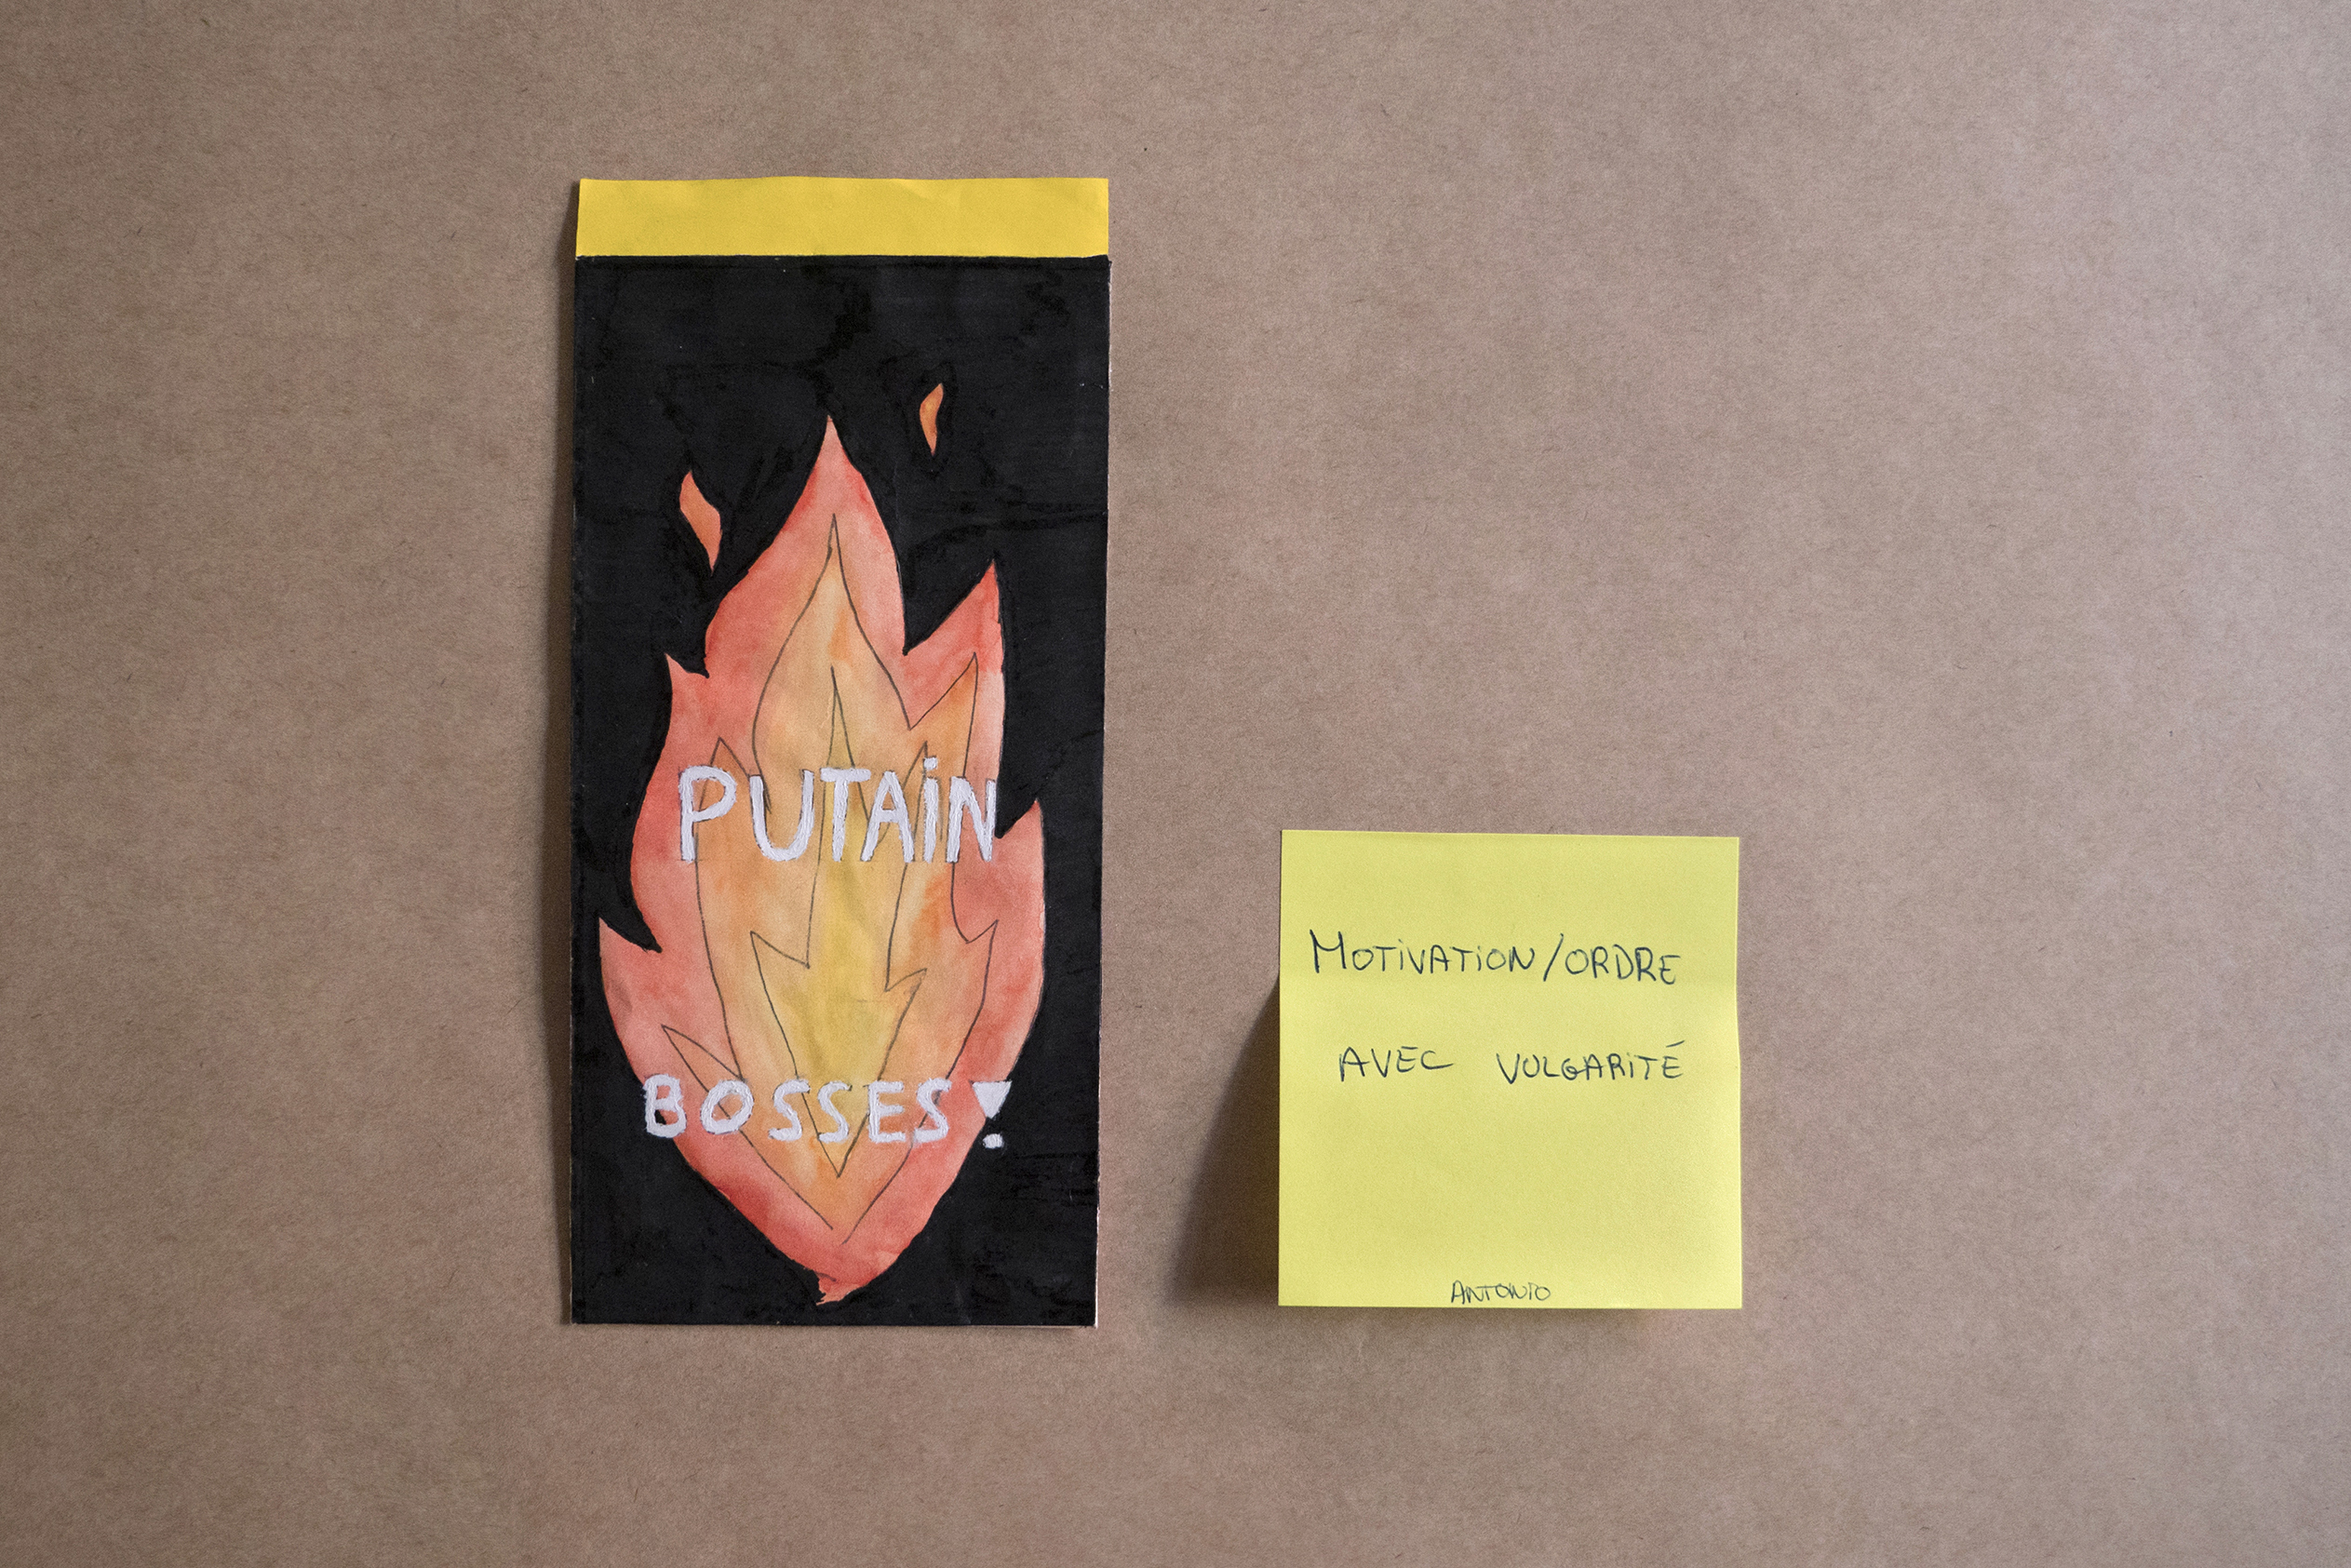 PUTAiN
BOSSES!
MOTiVATiON/ORDRE
AVEC VULGARiTÉ
ANTONiO